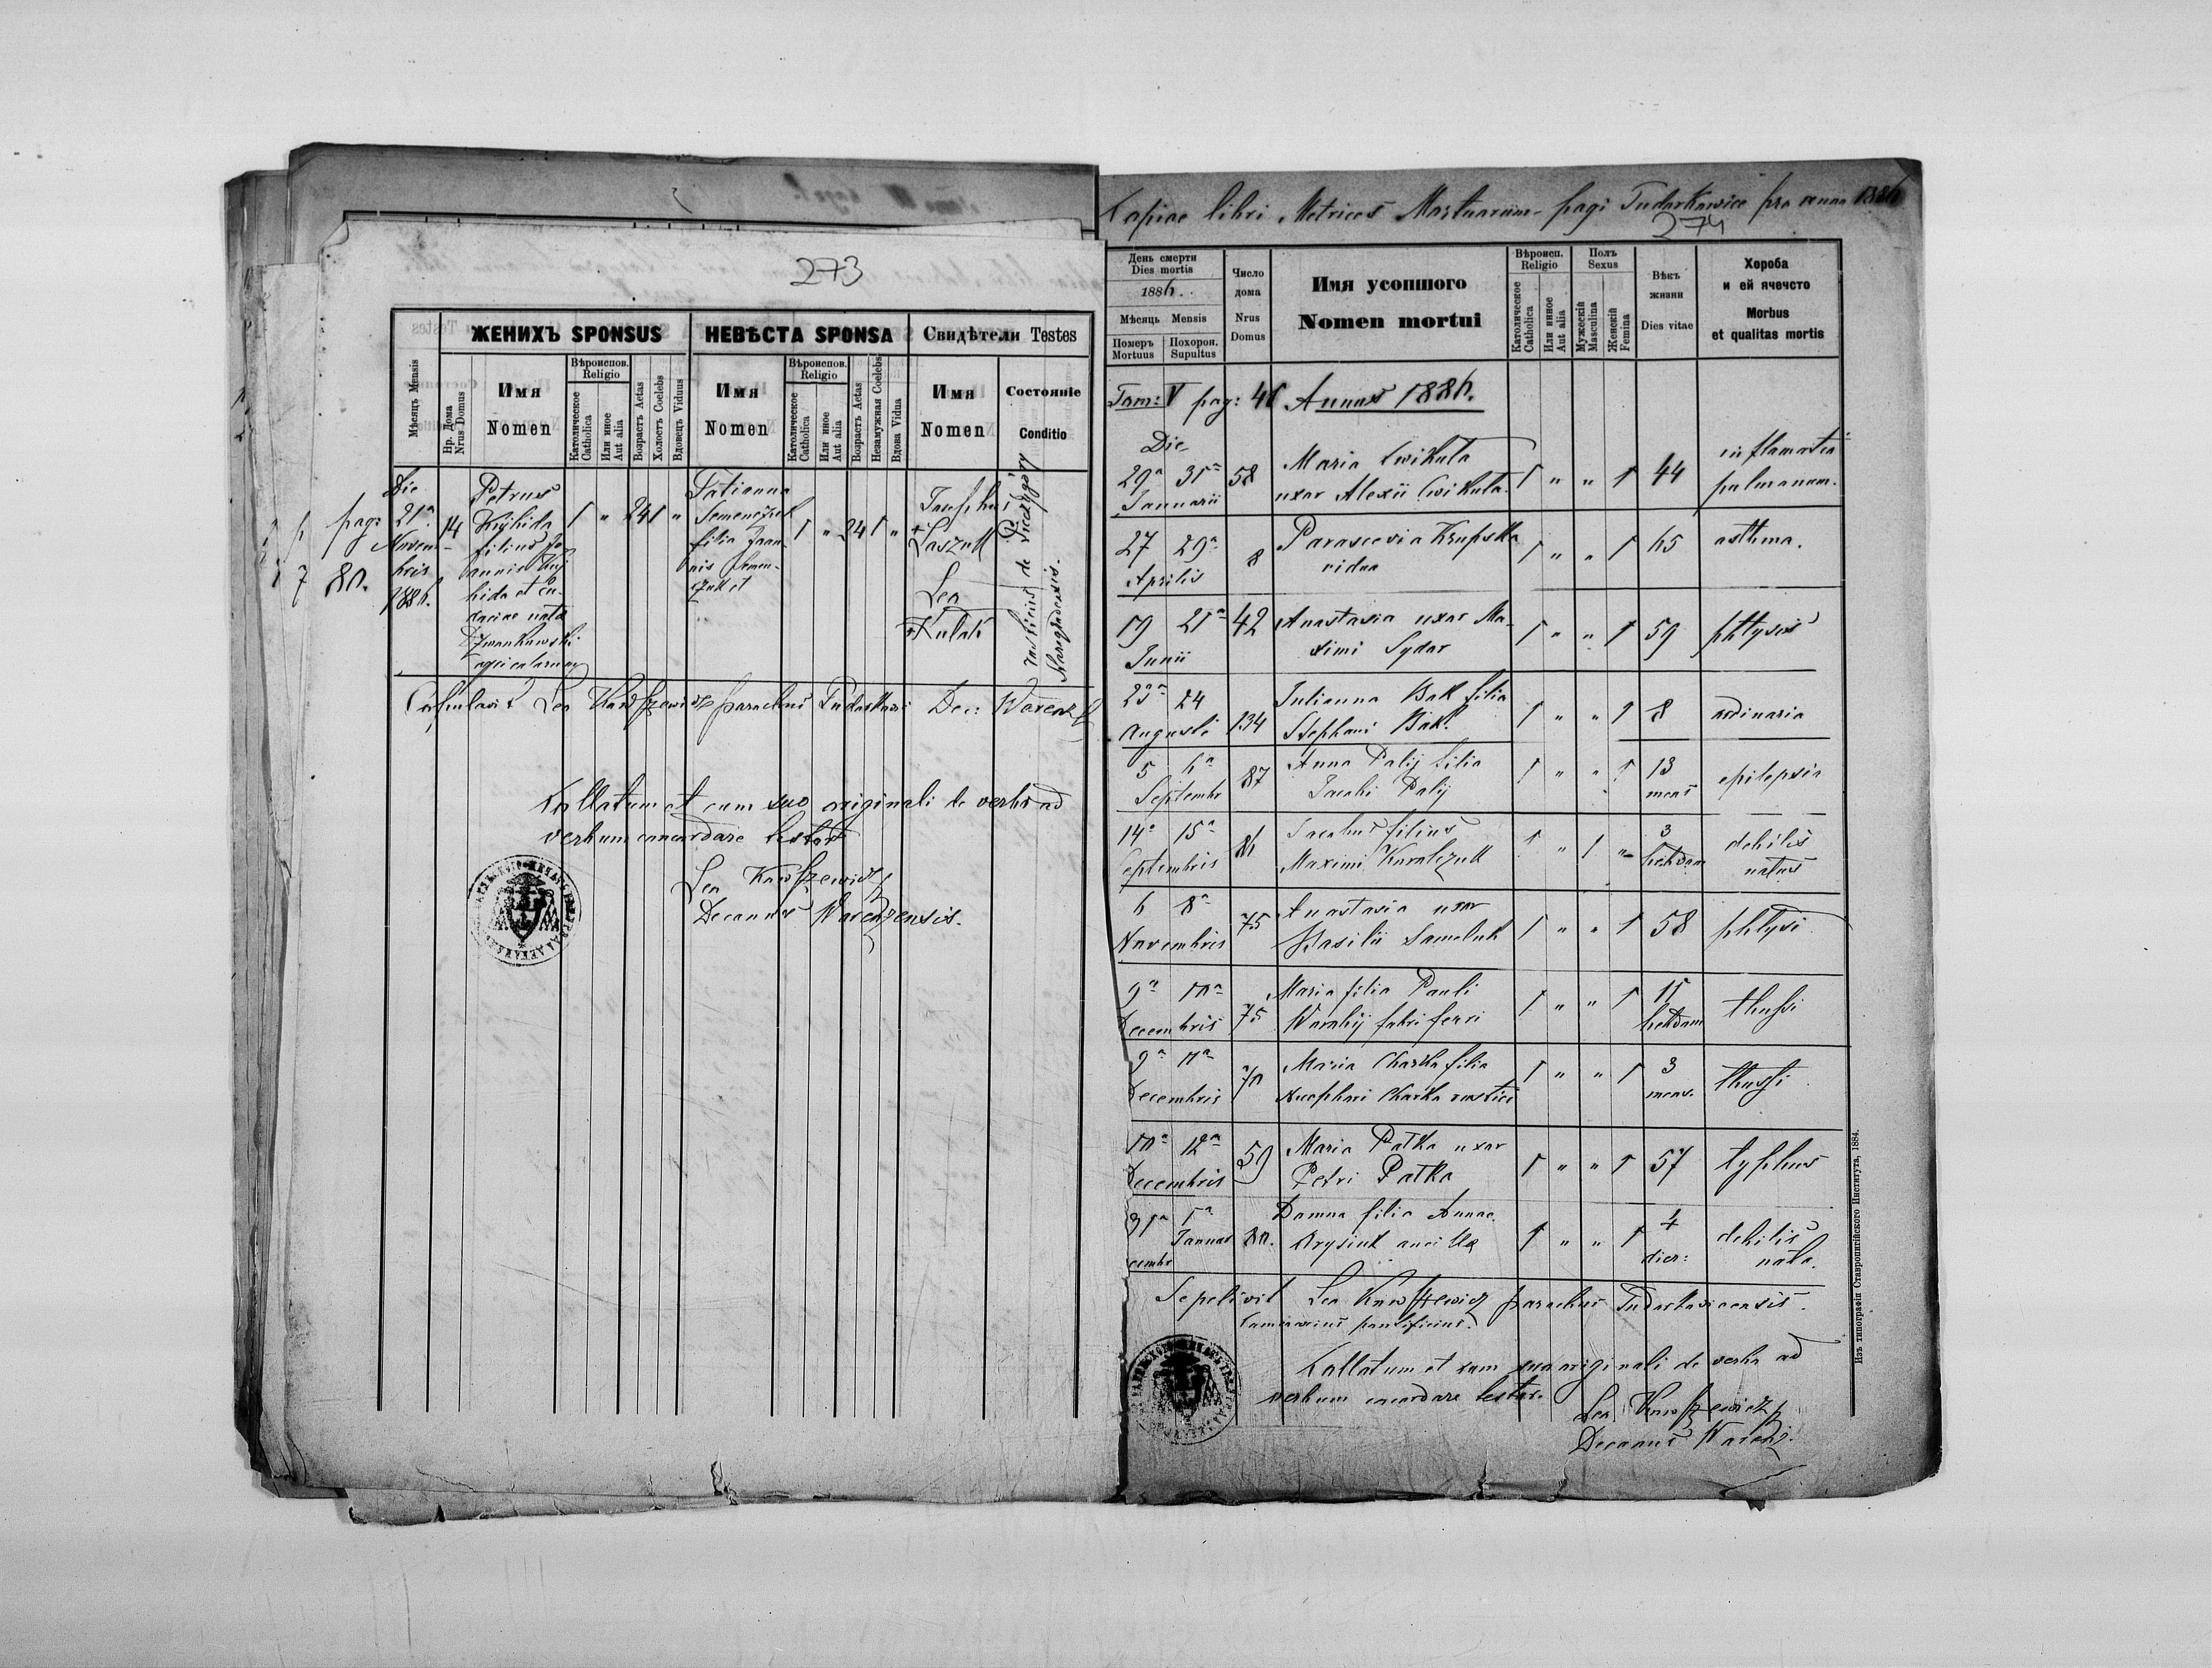 273
ЖЕНИХЪ SPONSUS
НЕВѢСТА SPONSA
Свидѣтели Testes
Мѣсяцъ Mensis
Нр. Дома Nrus Domus
Имя
Nomen
Вѣроиспов. Religio
Католическое Catholica
Или иное Aut alia
Возрастъ Aetas
Холостъ Coelebs
Вдовецъ Viduus
Имя
Nomen
Вѣроиспов. Religio
Католическое Catholica
Или иное Aut alia
Возрастъ Aetas
Незамужная Coelebs
Вдова Vidua
Имя
Nomen
Состояніе
Conditio
pag:
80.
Die
21ª
Novem-
bris
1886.
14
Petrus
filius Jo-
annis
1 " 24 1 "
Tatianna
filia Joan-
nis Semen-
czuk et
1 " 24 1 "
Josephus
Łaszuk
Leo
+Kulak
Copulavit Leo parochus Tudorkow. Dec: Warenz
Collatum et cum suo originali de verbo ad
verbum concordare testor
Leo
Decanus Warenzensis.
Copiae libri Metrices Mortuorum pagi Tudorkowice pro anno 1886
274
День смерти
Dies mortis
1886.
Мѣсяць Mensis
Померъ Mortuus
Похорон. Supultus
Число
дома
Nrus
Domus
Имя усопшого
Nomen mortui
Вѣроисп. Religio
Католическое Catholica
Или инное Aut alia
Полъ Sexus
Мужескій Masculina
Женскій Femina
Вѣкъ
жизни
Dies vitae
Хороба
и ей ячечсто
Morbus
et qualitas mortis
Tom: V pag: 46 Annus 1886.
Die
29ª 31ª 58 Maria Cwikuła 1 " " 1 44 inflamatio
Januarii uxor Alexii Cwikuła pulmonum.
27 29ª 8 Parascevia Krupska 1 " " 1 65 asthma.
Aprilis vidua
19 21ª 42 Anastasia uxor Ma- 1 " " 1 59 phtysis
Junii ximi Sydor
23ª 24 134 Julianna Bak filia 1 " " 1 8 ordinaria
Augusti Stephani Bak.
5 6ª 87 Anna Palij filia 1 " " 1 13 epilepsia
Septembr Jacobi Palij mens
14ª 15ª 86 Jacobus filius 1 " 1 " 3 debilis
eptembris Maximi Kowalczuk hebdom natus
6 8ª 75 Anastasia uxor 1 " " 1 58 phtysi
Novembris Basilii Samoluk
9ª 10ª 75 Maria filia Pauli 1 " " 1 11 thussi
Decembris Worobij fabri ferri hebdom
9ª 11ª 70 Maria Charka filia 1 " " 1 3 thussi
Decembris Charka rustici mens.
10ª 12ª 59 Maria Patka uxor 1 " " 1 57 typhus
Decembris Petri Patka
31ª 1ª 80. Domna filia Annae 1 " " 1 4 debilis
cembr Januar Krysiuk ancilla dier: nata.
Sepelivit Leo parochus Tudorkovicensis.
Collatum et cum suo originali de verbo ad
verbum concordare testor.
Leo
Decanus Warenz.
Изъ типографіи Ставропигійского Института, 1884.